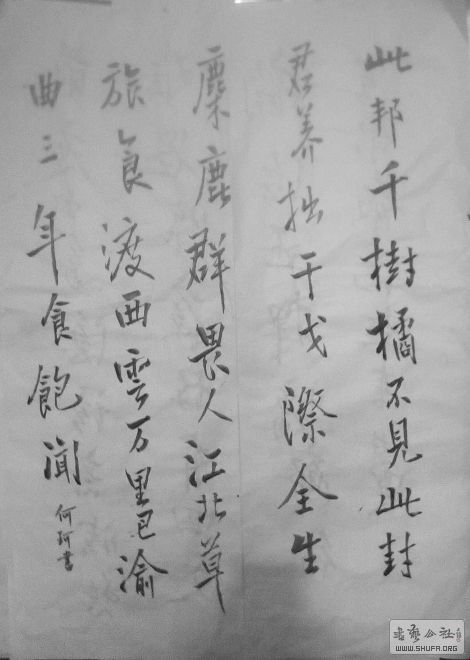 此邦千樹橘不見此封
君养拙干戈際全生
麋鹿群畏人江北草
旅食渡西雲万里巴渝
曲三年食飽闻
何珂書
書藝公社
WWW.SHUFA.ORG